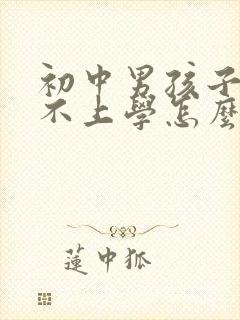 初中男孩子
不上學怎麼
蓮中狐